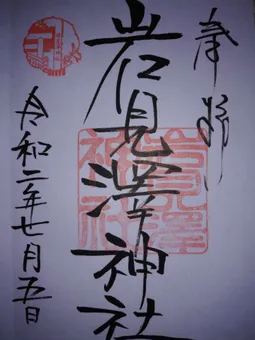 奉拝
岩見澤神社
岩見澤
神社
令和二年七月五日